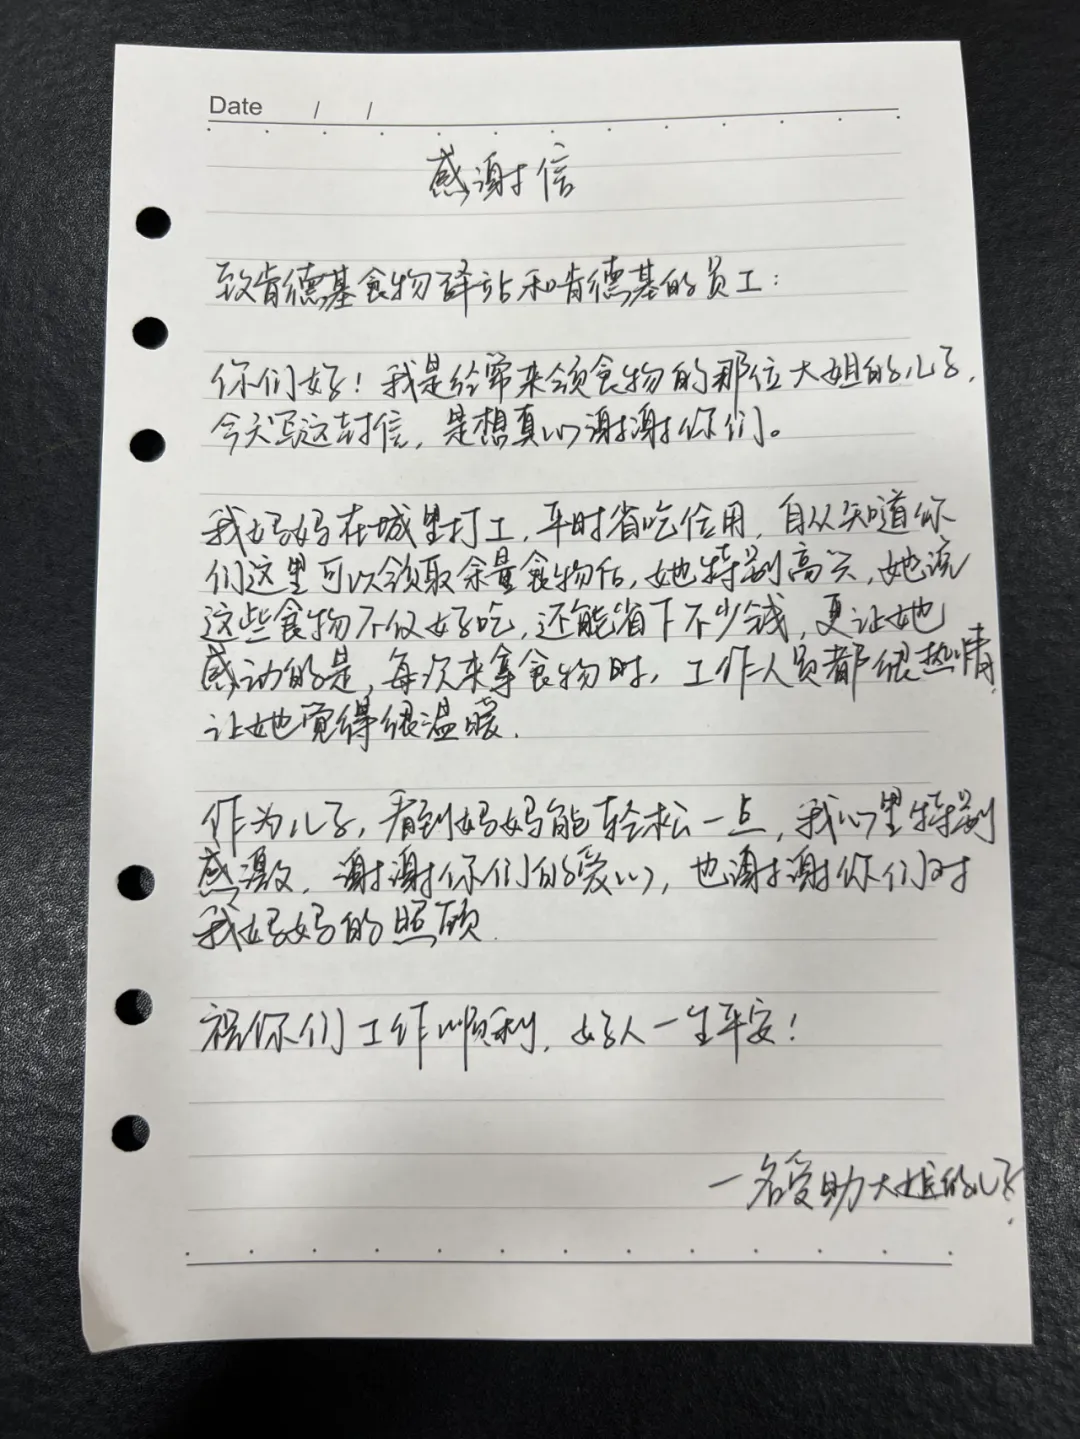 Date / /
感谢信
致肯德基食物驿站和肯德基的员工：
你们好！我是经常来领食物的那位大姐的儿子，
今天写这封信，是想真心谢谢你们。
我妈妈在城里打工，平时省吃俭用，自从知道你
们这里可以领取余量食物后，她特别高兴，她说
这些食物不仅好吃，还能省下不少钱，更让她
感动的是，每次来拿食物时，工作人员都很热情，
让她觉得很温暖.
作为儿子，看到妈妈能轻松一点，我心里特别
感激，谢谢你们的爱心，也谢谢你们对
我妈妈的照顾.
祝你们工作顺利，好人一生平安！
一名受助大姐的儿子.